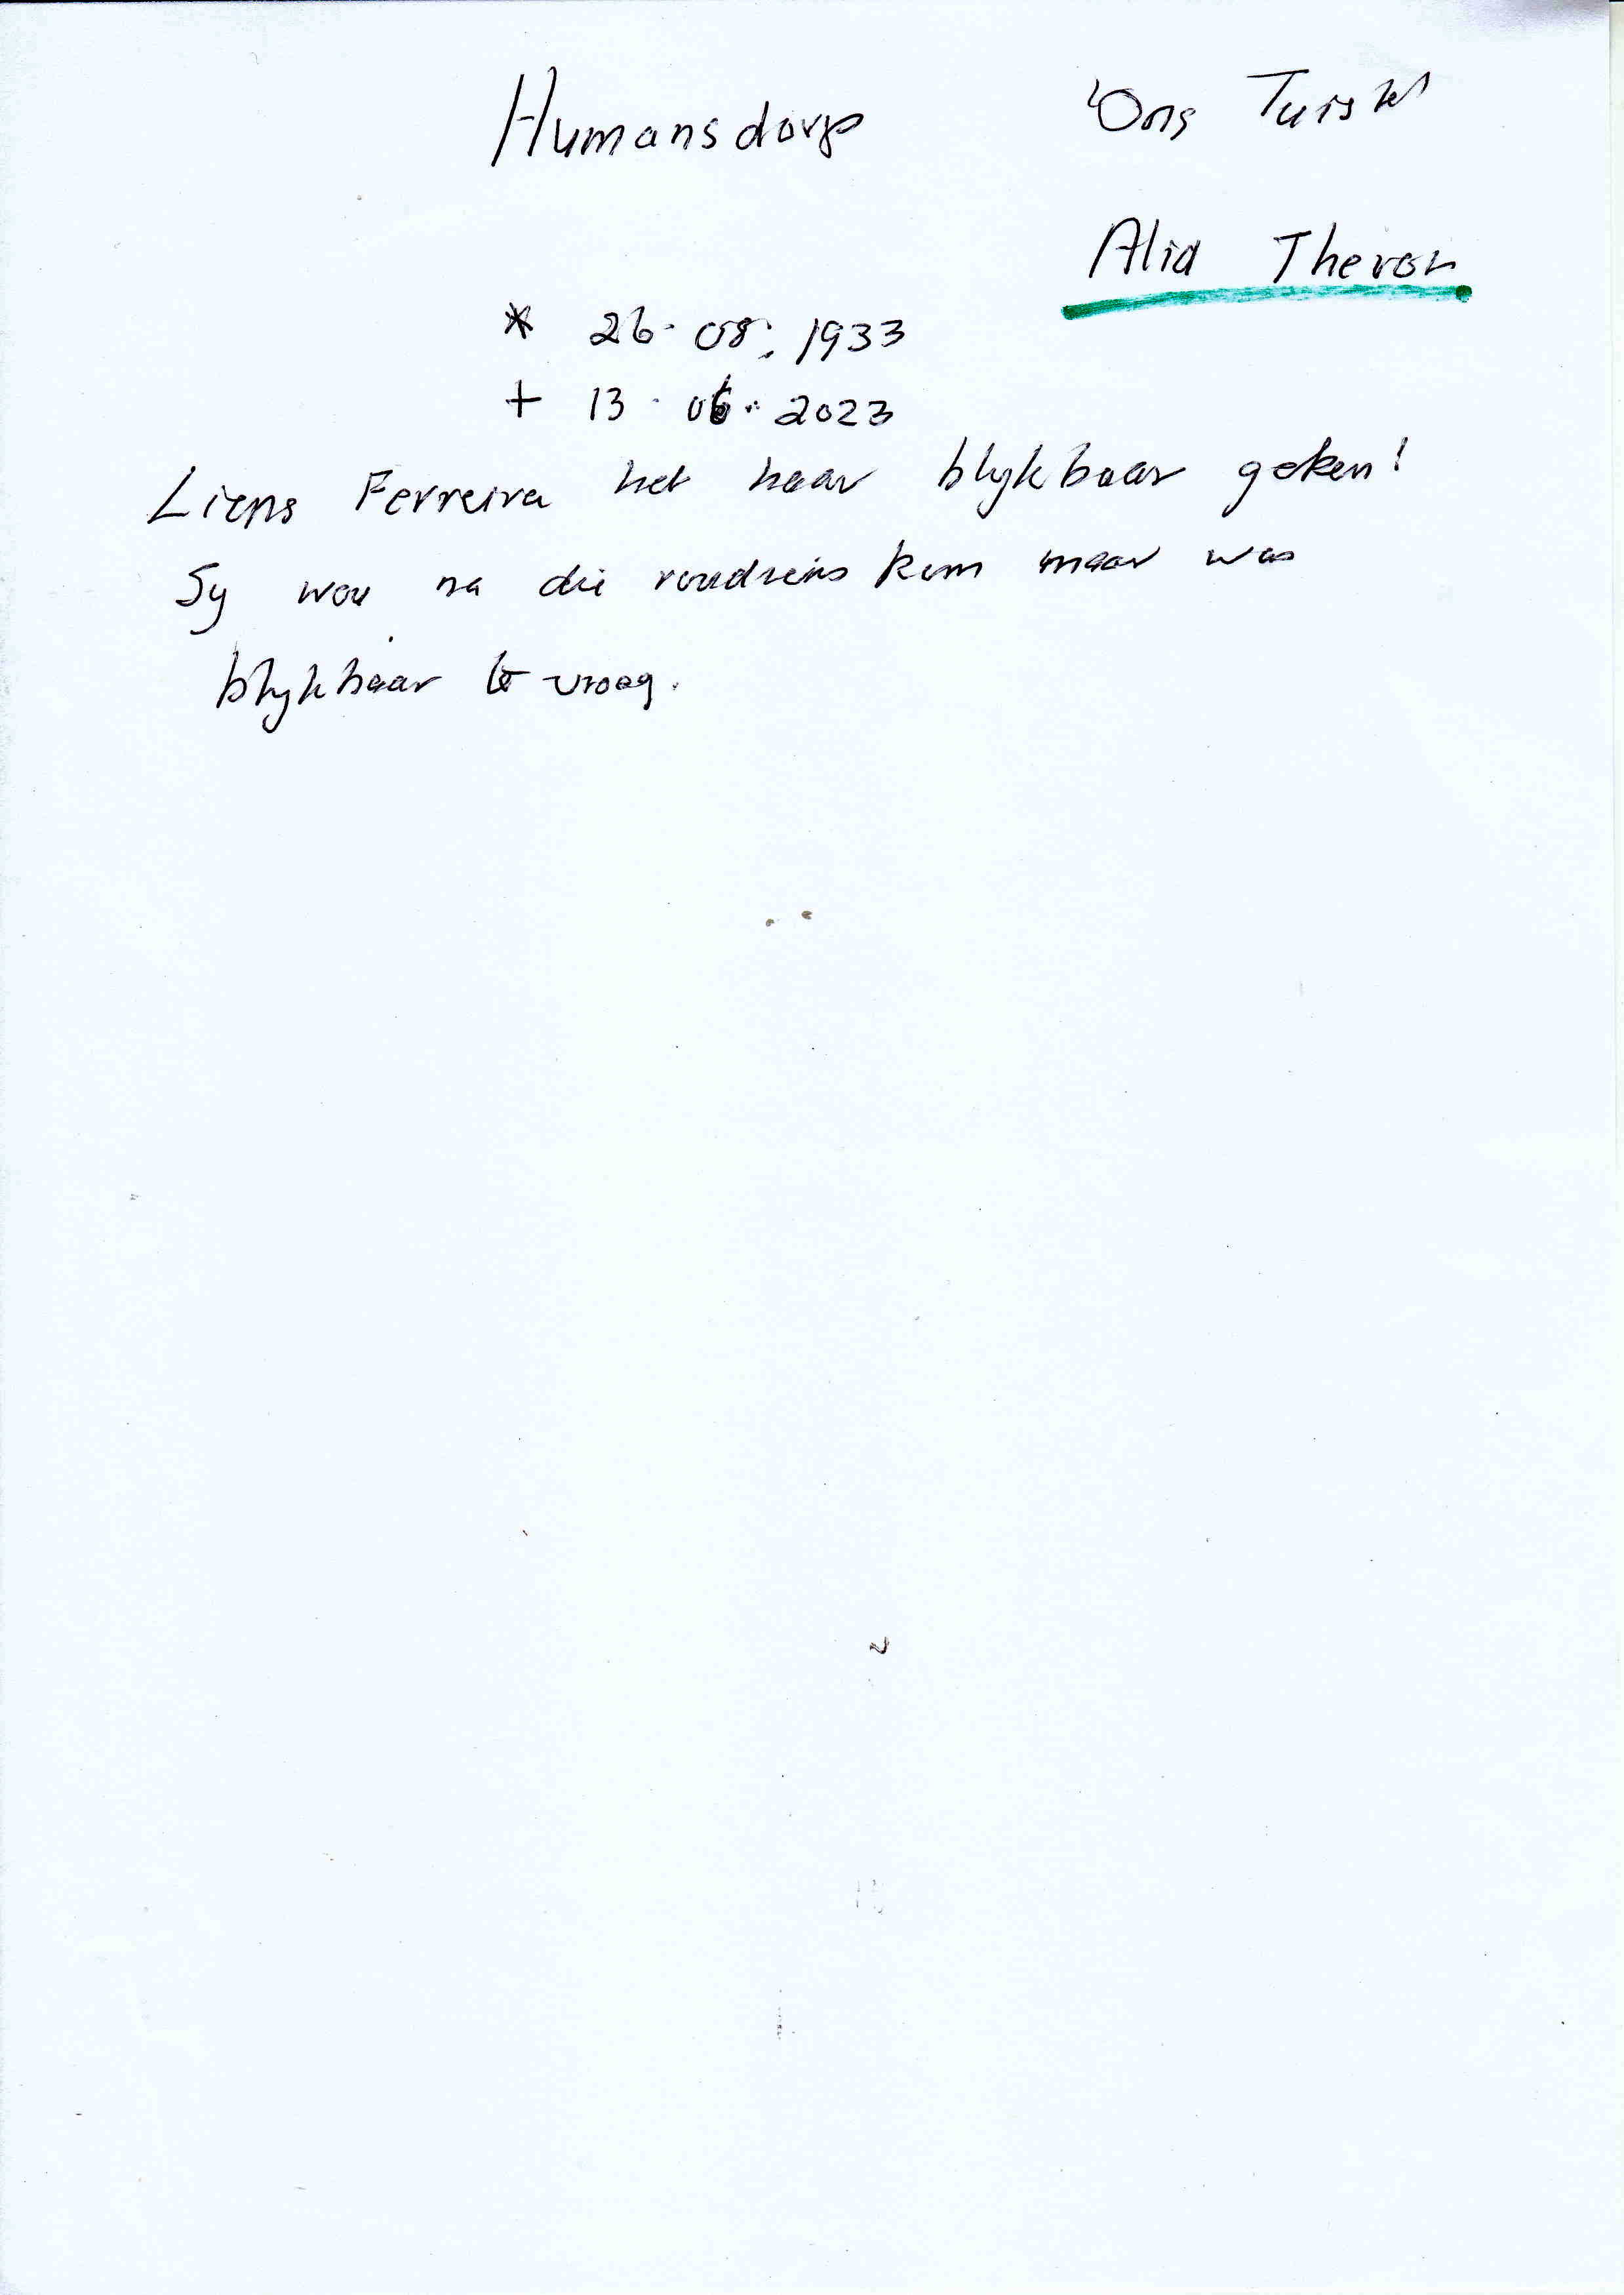 Humansdorp 'Ons Tuiste'
Alia Theron
* 26.08.1933
+ 13.06.2023
Liens Ferreira het haar blykbaar geken!
Sy wou na die roudiens kom maar was
blykbaar te vroeg.